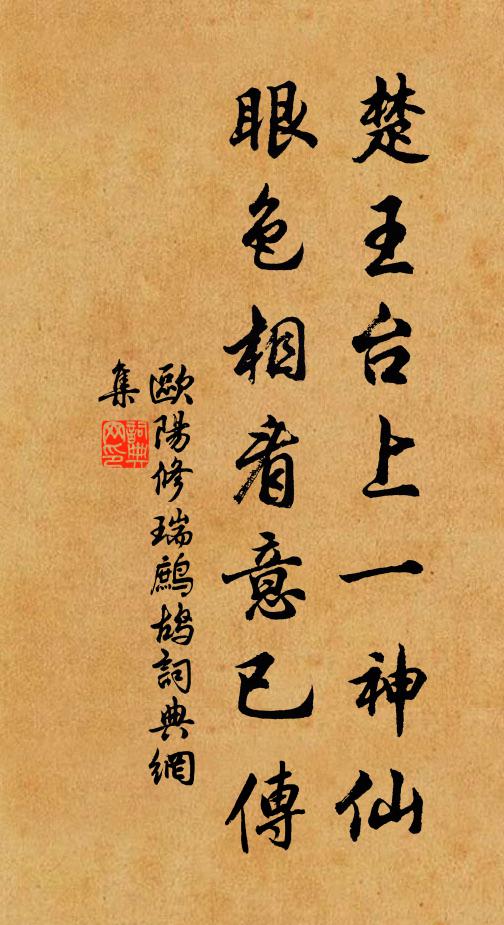 楚王台上一神仙
眼色相看意已傳
歐陽修瑞鷓鴣詞典網
集
詞典
网印